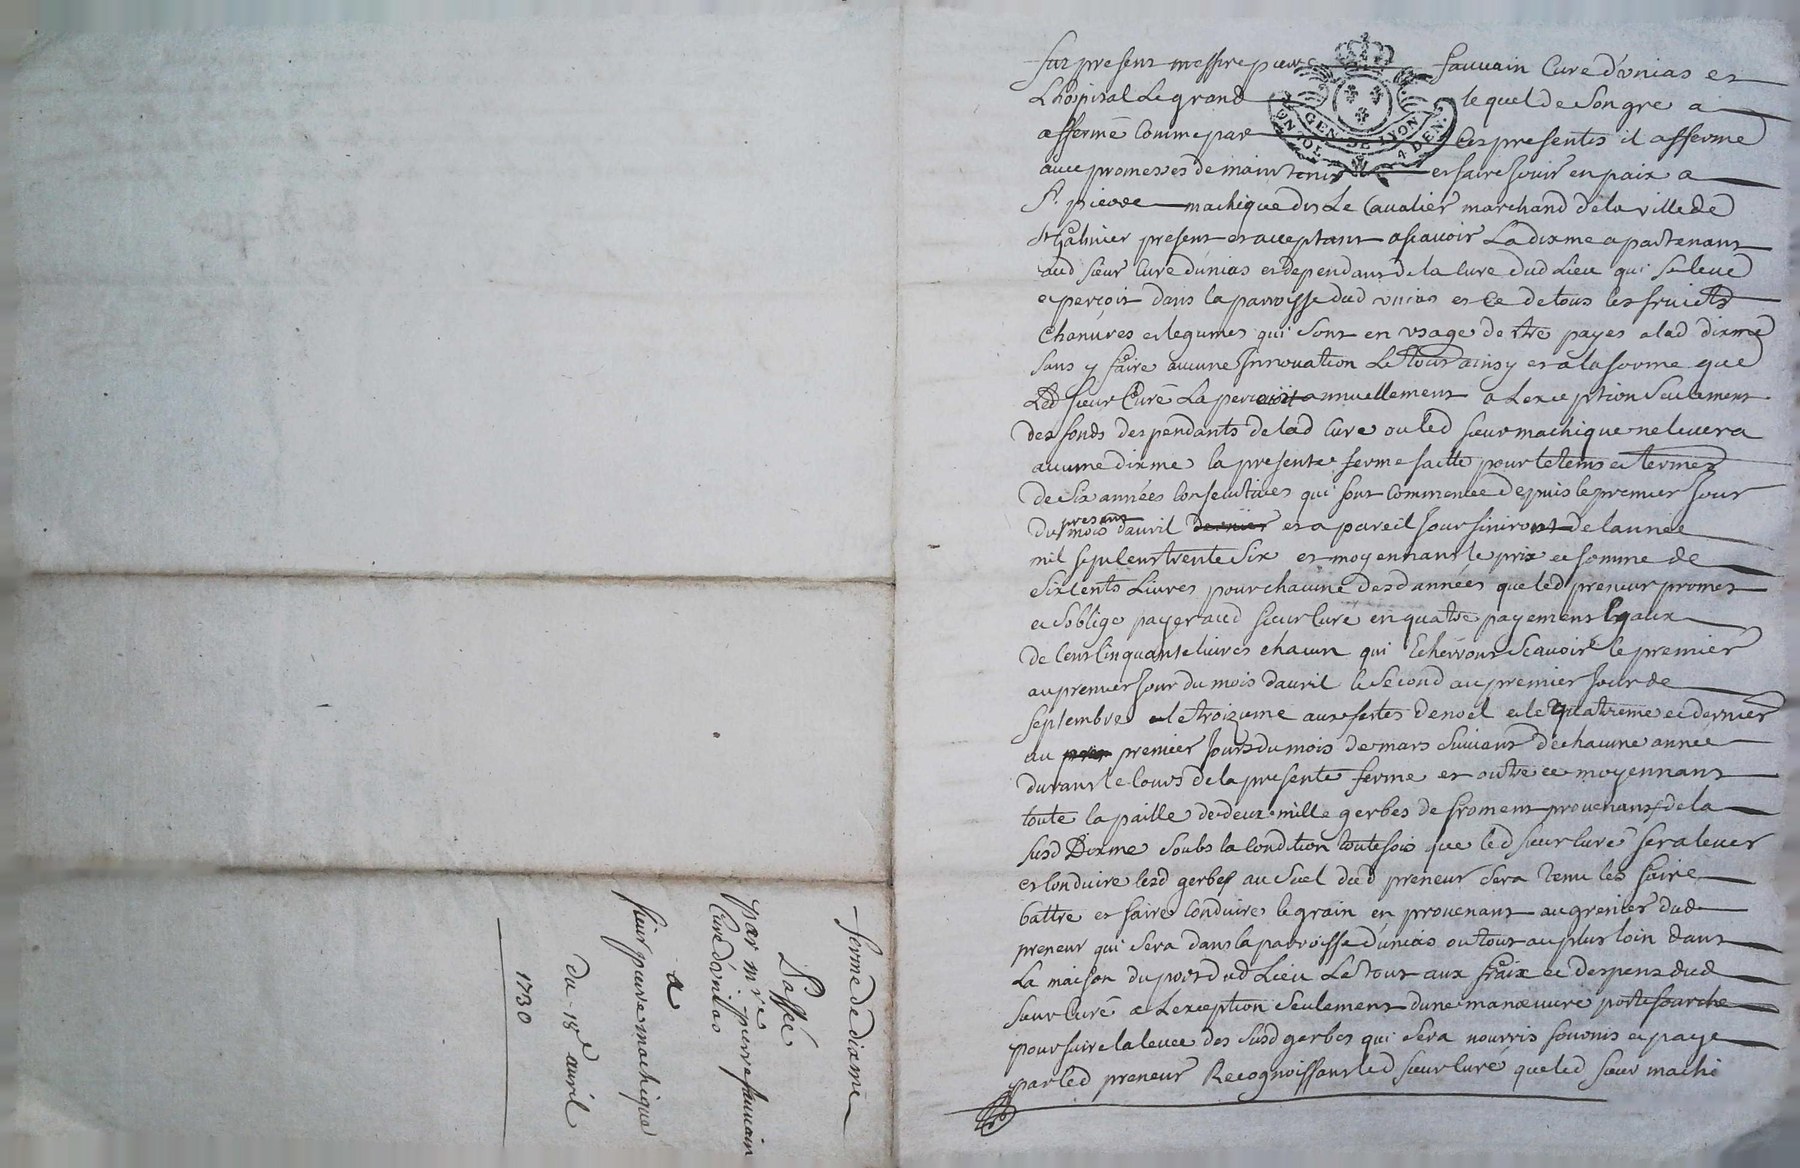 ferme de dixme
Passée
par m.re pierre fauvain
Curé dûnias
a
sieur pierre machique
du 18e avril
1730
fut present messire pierre fauvain Curé dûnias et
Lhopital Le grand lequel de son gré a
affermé Comme par les presentes il afferme
avec promesses de maintenir et faire jouir en paix a
Sr. pierre machique dit Le Cavalier marchand de la ville de
St Galmier present et acceptant asçavoir La dixme apartenant
aud sieur Curé dûnias et dependant de la Cure dud Lieu qui se leve
et perçoit dans la parroisse dud unias et ce de tous les fruicts
Chanvres et legumes qui sont en usage detre payes a lad dixme
sans y faire aucune Innovation Le tout ainsy et a la forme que
Led sieur Curé La perçoit annuellement a Lexception seulement
des fonds despendants de lad Cure ou led sieur machique ne levera
aucune dixme la presente ferme faitte pour le tems et termes
de six années Consecutives qui sont commencée depuis le premier jour
du present mois davril dernier et a pareil jour finiront de lannée
mil sept cent trente six et moyennant le prix et somme de
six cents Livres pour chacune desd années que led preneur promet
et soblige payer aud sieur Curé en quatre payements Egaux
de Cent Cinquante livres chacun qui Echerront scavoir le premier
au premier jour du mois davril le second au premier jour de
septembre et le troizieme aux festes de noel et le quatrieme et dernier
au premier jour du mois de mars suivant de chacune année
durant le cours de la presente ferme et outre ce moyennant
toute la paille de deux mille gerbes de froment provenant de la
susd Dixme soubs la condition toutefois que led sieur Curé fera lever
et conduire lesd gerbes au suel dud preneur sera tenu les faire
battre et faire Conduire le grain en provenant au grenier dud
preneur qui sera dans la parroisse dûnias ou tout au plus loin dans
La maison du port dud Lieu Le tout aux fraix et despens dud
sieur Curé a Lexception seulement dune manœuvre porte fourche
pour faire la levée des susd gerbes qui sera nourris fournis et paye
par led preneur Recognoissant led sieur Curé que led sieur machi
GEN DE LYON
EN TOL
4 DEN.